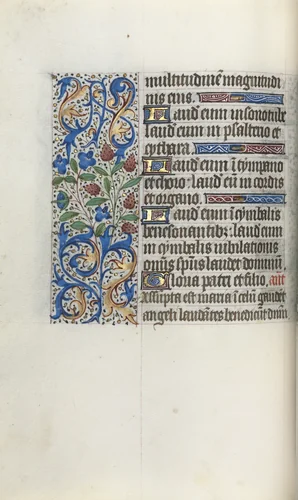 multitudinem magnitudi
nis eius.
Laud eum in sono tube
laud eum in psalterio et
cythara
Laud eum i tympano
et choro: laud eu in cordis
et organo.
Laud eum i cymbalis
benesonantib: laud eum
in cymbalis iubilationis
omis spus laudet dominum.
Gloria patri et filio, ant
Assupta est maria i celu gaudet
angeli laudates benedicut dnm